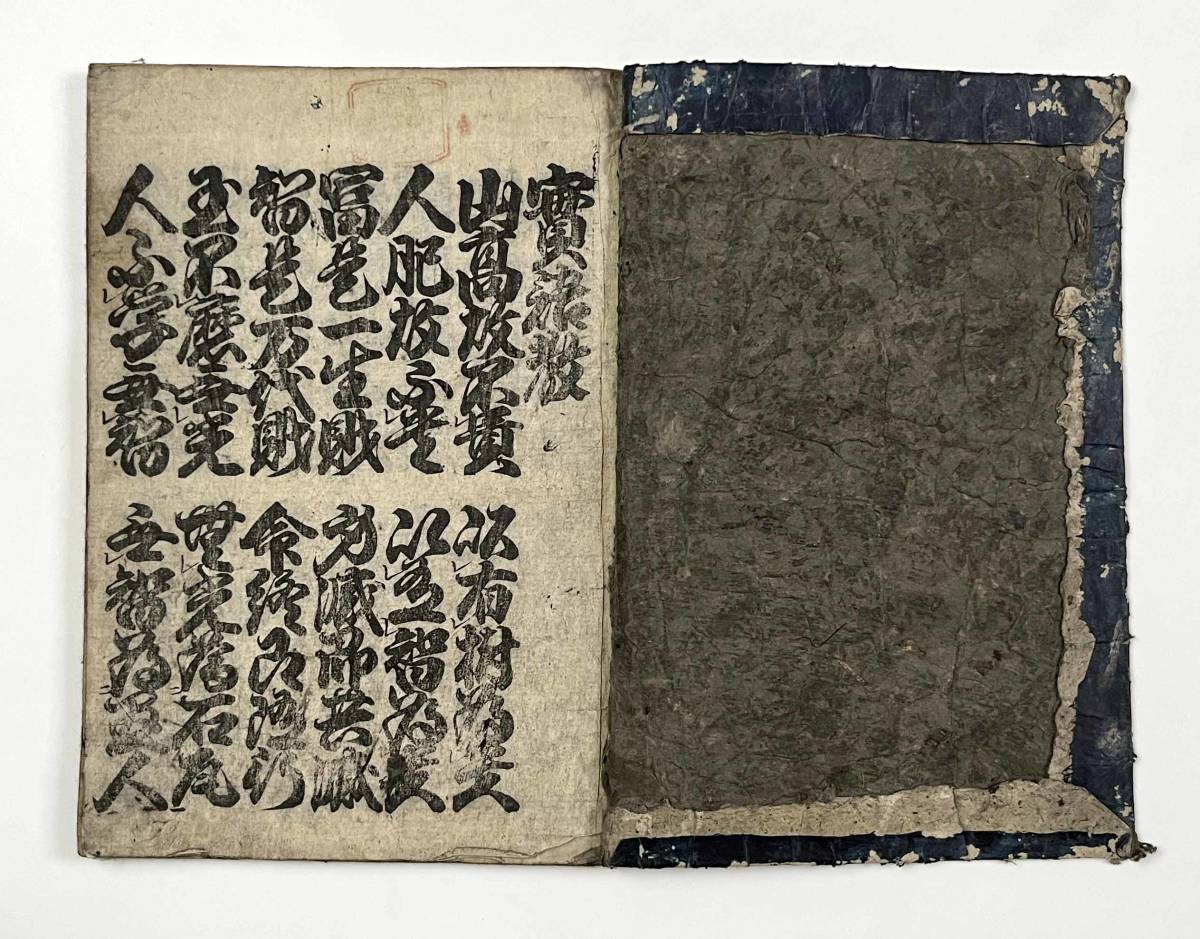 實語教
山高故不貴 以有樹為貴
人肥故不貴 以有智為貴
冨是一生財 身滅即共滅
智是万代財 命終即随行
玉不磨無光 無光為石瓦
人不学無智 無智為愚人